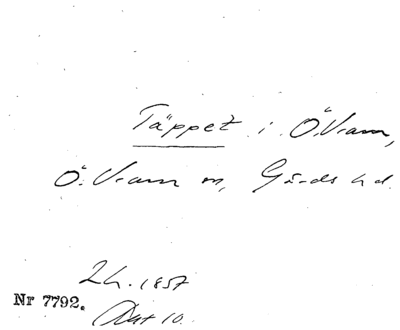 Täppet i Ö. Vram,
Ö. Vram sn, Gärds hd.
Lh. 1857
Nr 7792.
Akt 10.